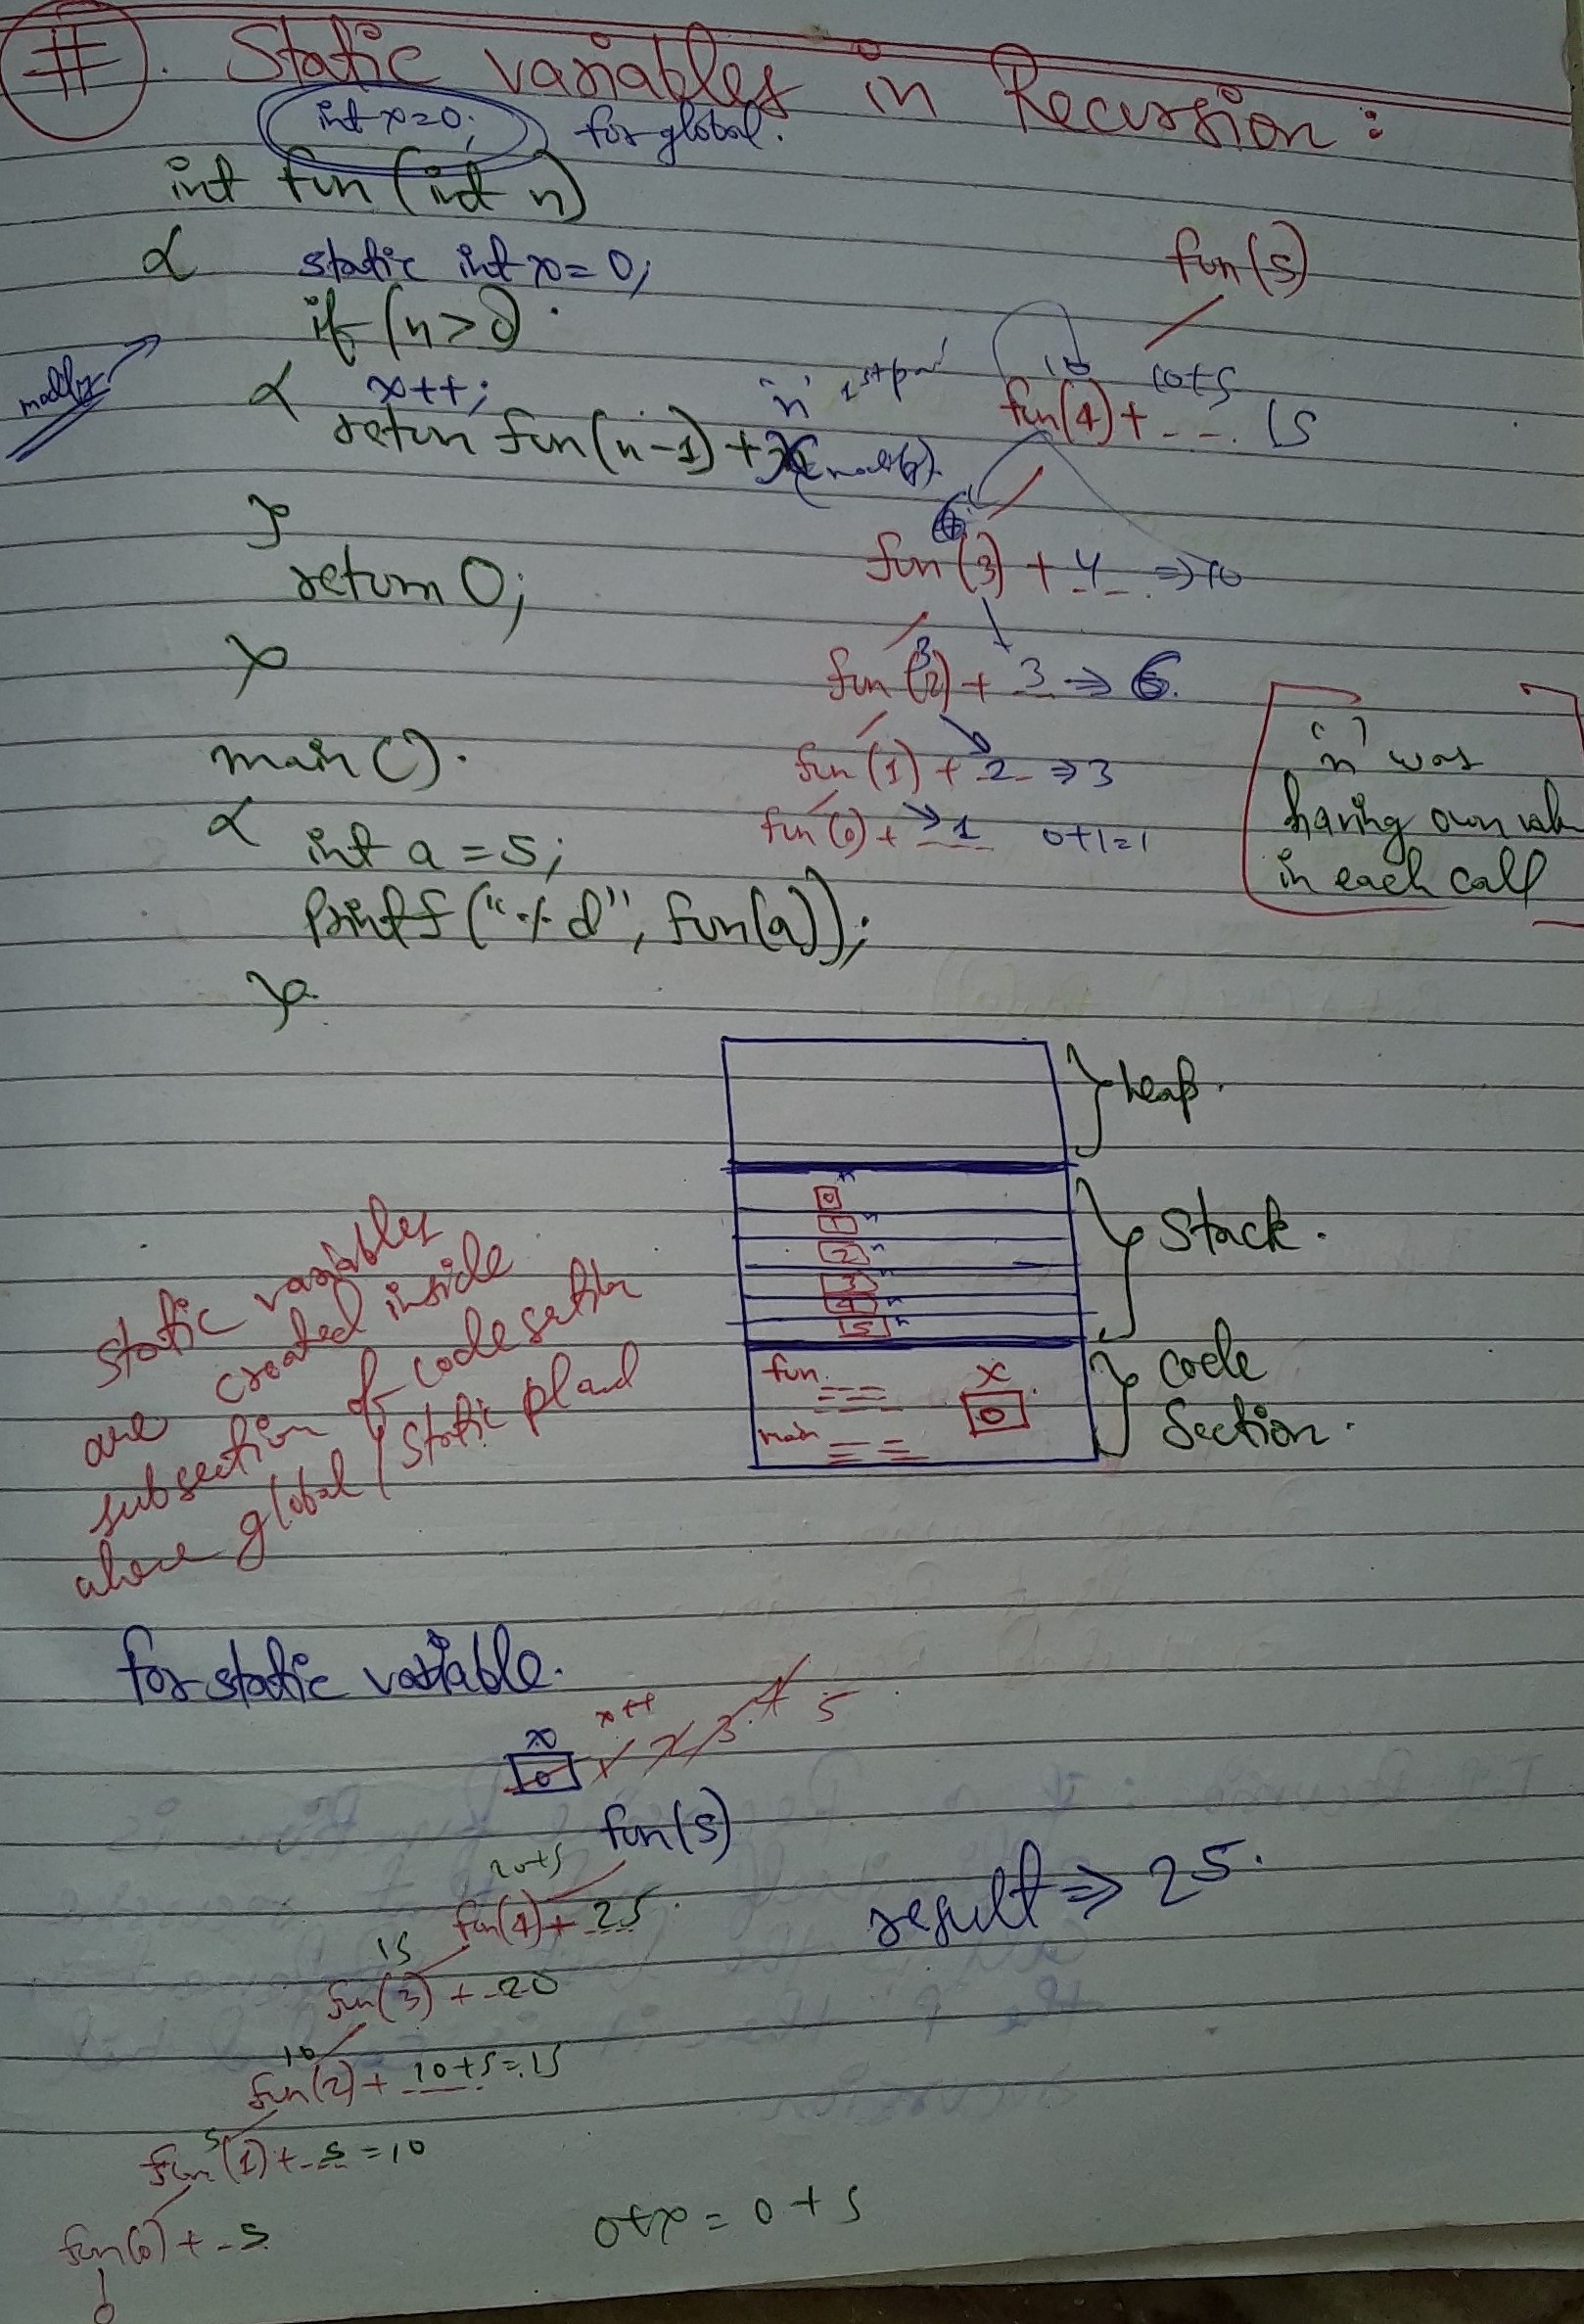 # . Static variables in Recursion :
int x=0; for global.
int fun (int n)
{ static int x=0;
if (n>0)
modify
{ x++;
'n' 1st
return fun(n-1) + x (modify).
}
return 0;
}
main ().
{
int a = 5;
printf ("%d", fun(a));
}
fun(5)
10 10+5
fun(4) + --- 15
6
fun(3) + 4 ⇒ 10
3
fun(2) + 3 ⇒ 6.
fun(1) + 2 ⇒ 3
fun(0) + 1 0+1=1
'n' was
having own
in each call
} heap.
n
0
1 n
2 n
3 n
4 n
5 n
} Stack.
fun.
main
x
0
} Code
Section.
static variables
are created inside
subsection of code
where global / static
for static variable.
x x++
0 1 2 3 4 5
fun(5)
20+5
fun(4) + 25.
15
fun(3) + 20
10
fun(2) + 10+5=15
5
fun(1) + 5 = 10
fun(0) + 5
0
result ⇒ 25.
0+x = 0+5